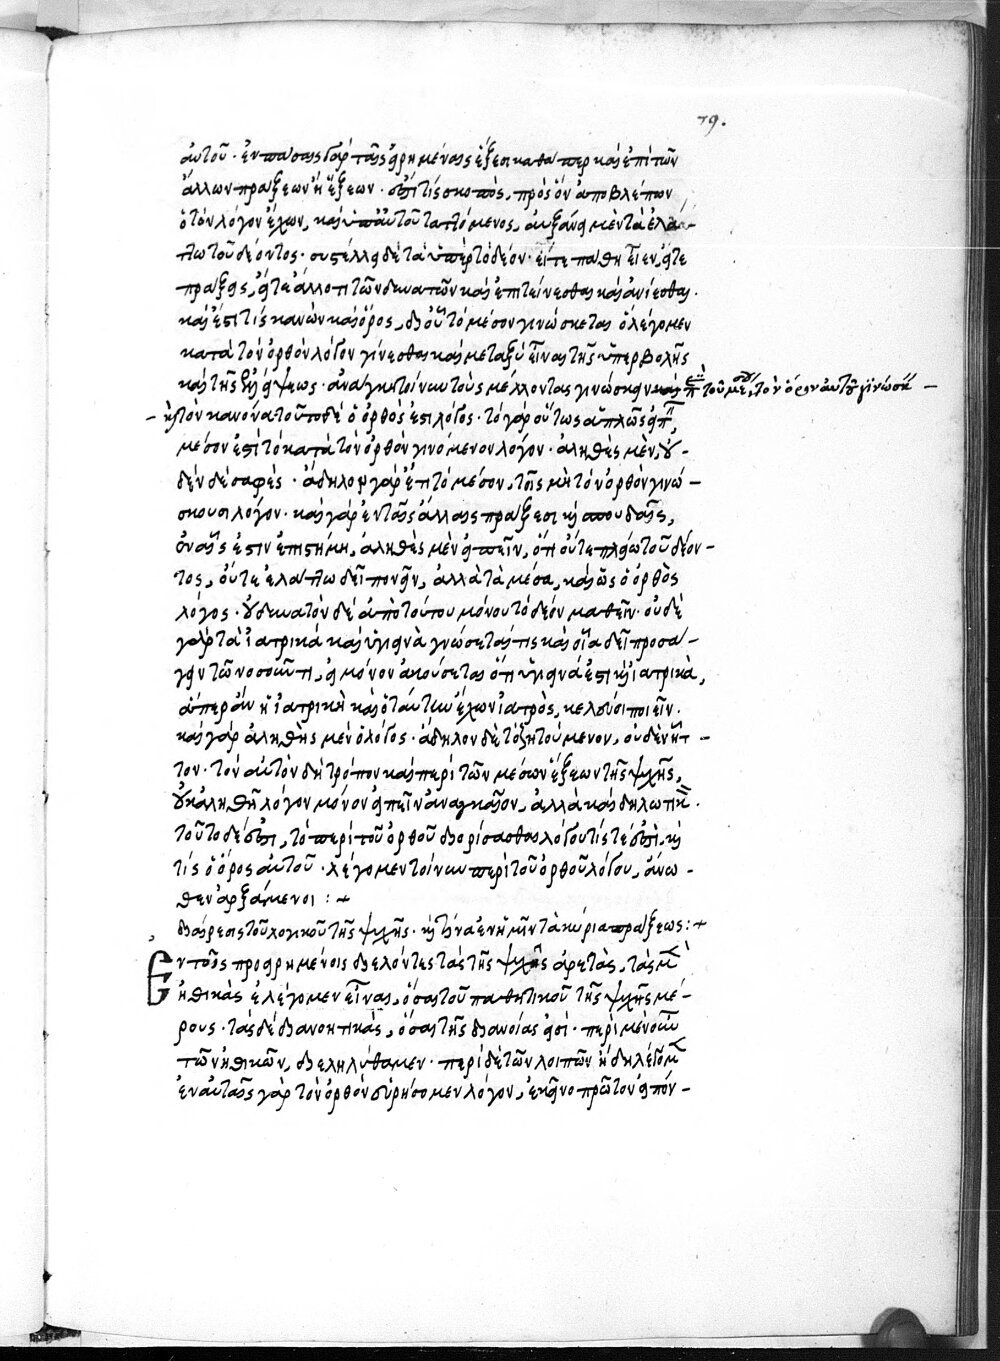 79.
αὐτοῦ· ἐν πάσαις γὰρ ταῖς εἰρημέναις ἕξεσι καθάπερ καὶ ἐπὶ τῶν
ἄλλων πράξεων ἢ ἕξεων· ἐστί τις σκοπὸς, πρὸς ὃν ἀποβλέπων
ὁ τὸν λόγον ἔχων, καὶ ὑπ' αὐτοῦ ταττόμενος, αὐξάνει μὲν τὰ ἐλά-
ττω τοῦ δέοντος· συστέλλει δὲ τὰ ὑπὲρ τὸ δέον· εἴτε πάθη εἶεν, εἴτε
πράξεις, εἴτε ἄλλό τι τῶν δυνατῶν καὶ ἐπιτείνεσθαι καὶ ἀνίεσθαι.
καὶ ἔστι τίς κανὼν καὶ ὅρος, δι' οὗ τὸ μέσον γινώσκεται ὃ λέγομεν
κατὰ τὸν ὀρθὸν λόγον γίνεσθαι καὶ μεταξὺ εἶναι τῆς ὑπερβολῆς
καὶ τῆς ἐλλείψεως· ἀναγκη τοίνυν τοὺς μέλλοντας γινώσκειν περὶ τοῦ μέσου, τὸν ὅρον αὐτοῦ γινώσκειν
καὶ τὸν κανόνα τοῦτο δέ ὁ ὀρθὸς ἐστι λόγος· τὸ γὰρ οὕτως ἁπλῶς εἰπεῖν,
μέσον ἐστὶ τὸ κατὰ τὸν ὀρθὸν γινόμενον λόγον· ἀληθὲς μὲν, οὐ-
δὲν δὲ σαφὲς· ἄδηλον γὰρ ἔτι τὸ μέσον, τοῖς μὴ τὸν ὀρθὸν γινώ-
σκουσι λόγον· καὶ γὰρ ἐν ταῖς ἄλλαις πράξεσι καὶ σπουδαῖς,
ἐν αἷς ἐστιν ἐπιστήμη, ἀληθὲς μὲν εἰπεῖν, ὅτι οὔτε πλείω τοῦ δέον-
τος, οὔτε ἐλάττω δεῖ πονεῖν, ἀλλὰ τὰ μέσα, καὶ ὡς ὁ ὀρθὸς
λόγος· οὐ δυνατὸν δέ ἀπὸ τούτου μόνου τὸ δέον μαθεῖν· οὐδὲ
γὰρ τὰ ἰατρικὰ καὶ ὑγιεινὰ γνώσεταί τις καὶ οἷα δεῖ προσά-
γειν τῶ νοσοῦντι, εἰ μόνον ἀκούσεται ὅτι ὑγιεινά ἐστι καὶ ἰατρικὰ,
ἅπερ ἂν ἡ ἰατρικὴ καὶ ὁ ταύτην ἔχων ἰατρὸς, κελεύσοι ποιεῖν.
καὶ γὰρ ἀληθὴς μὲν ὁ λόγος· ἄδηλον δὲ τὸ ζητούμενον, οὐδὲν ἧτ-
τον· τὸν αὐτὸν δὴ τρόπον καὶ περὶ τῶν μέσων ἕξεων τῆς ψυχῆς,
οὐκ ἀληθῆ λόγον μόνον εἰπεῖν ἀναγκαῖον, ἀλλὰ καὶ δηλωτικόν.
τοῦτο δέ ἐστι, τὸ περὶ τοῦ ὀρθοῦ διορίσασθαι λόγου τίς τέ ἐστι, καὶ
τίς ὁ ὅρος αὐτοῦ· λέγομεν τοίνυν περὶ τοῦ ὀρθοῦ λόγου, ἄνω-
θεν ἀρξάμενοι :+
διαίρεσις τοῦ λογικοῦ τῆς ψυχῆς· καὶ τίνα ἐν ἡμῖν τὰ κύρια πράξεως :+
Ἐν τοῖς προειρημένοις διελόντες τὰς τῆς ψυχῆς ἀρετὰς, τὰς μὲν
ἠθικὰς ἐλέγομεν εἶναι, ὅσαι τοῦ παθητικοῦ τῆς ψυχῆς μέ-
ρους· τὰς δὲ διανοητικὰς, ὅσαι τῆς διανοίας εἰσί· περὶ μὲν οὖν
τῶν ἠθικῶν, διεληλύθαμεν· περὶ δὲ τῶν λοιπῶν ἤδη λέγομεν
ἐν αὐταῖς γὰρ τὸν ὀρθὸν εὑρήσομεν λόγον, ἐκεῖνο πρῶτον εἰπόν-